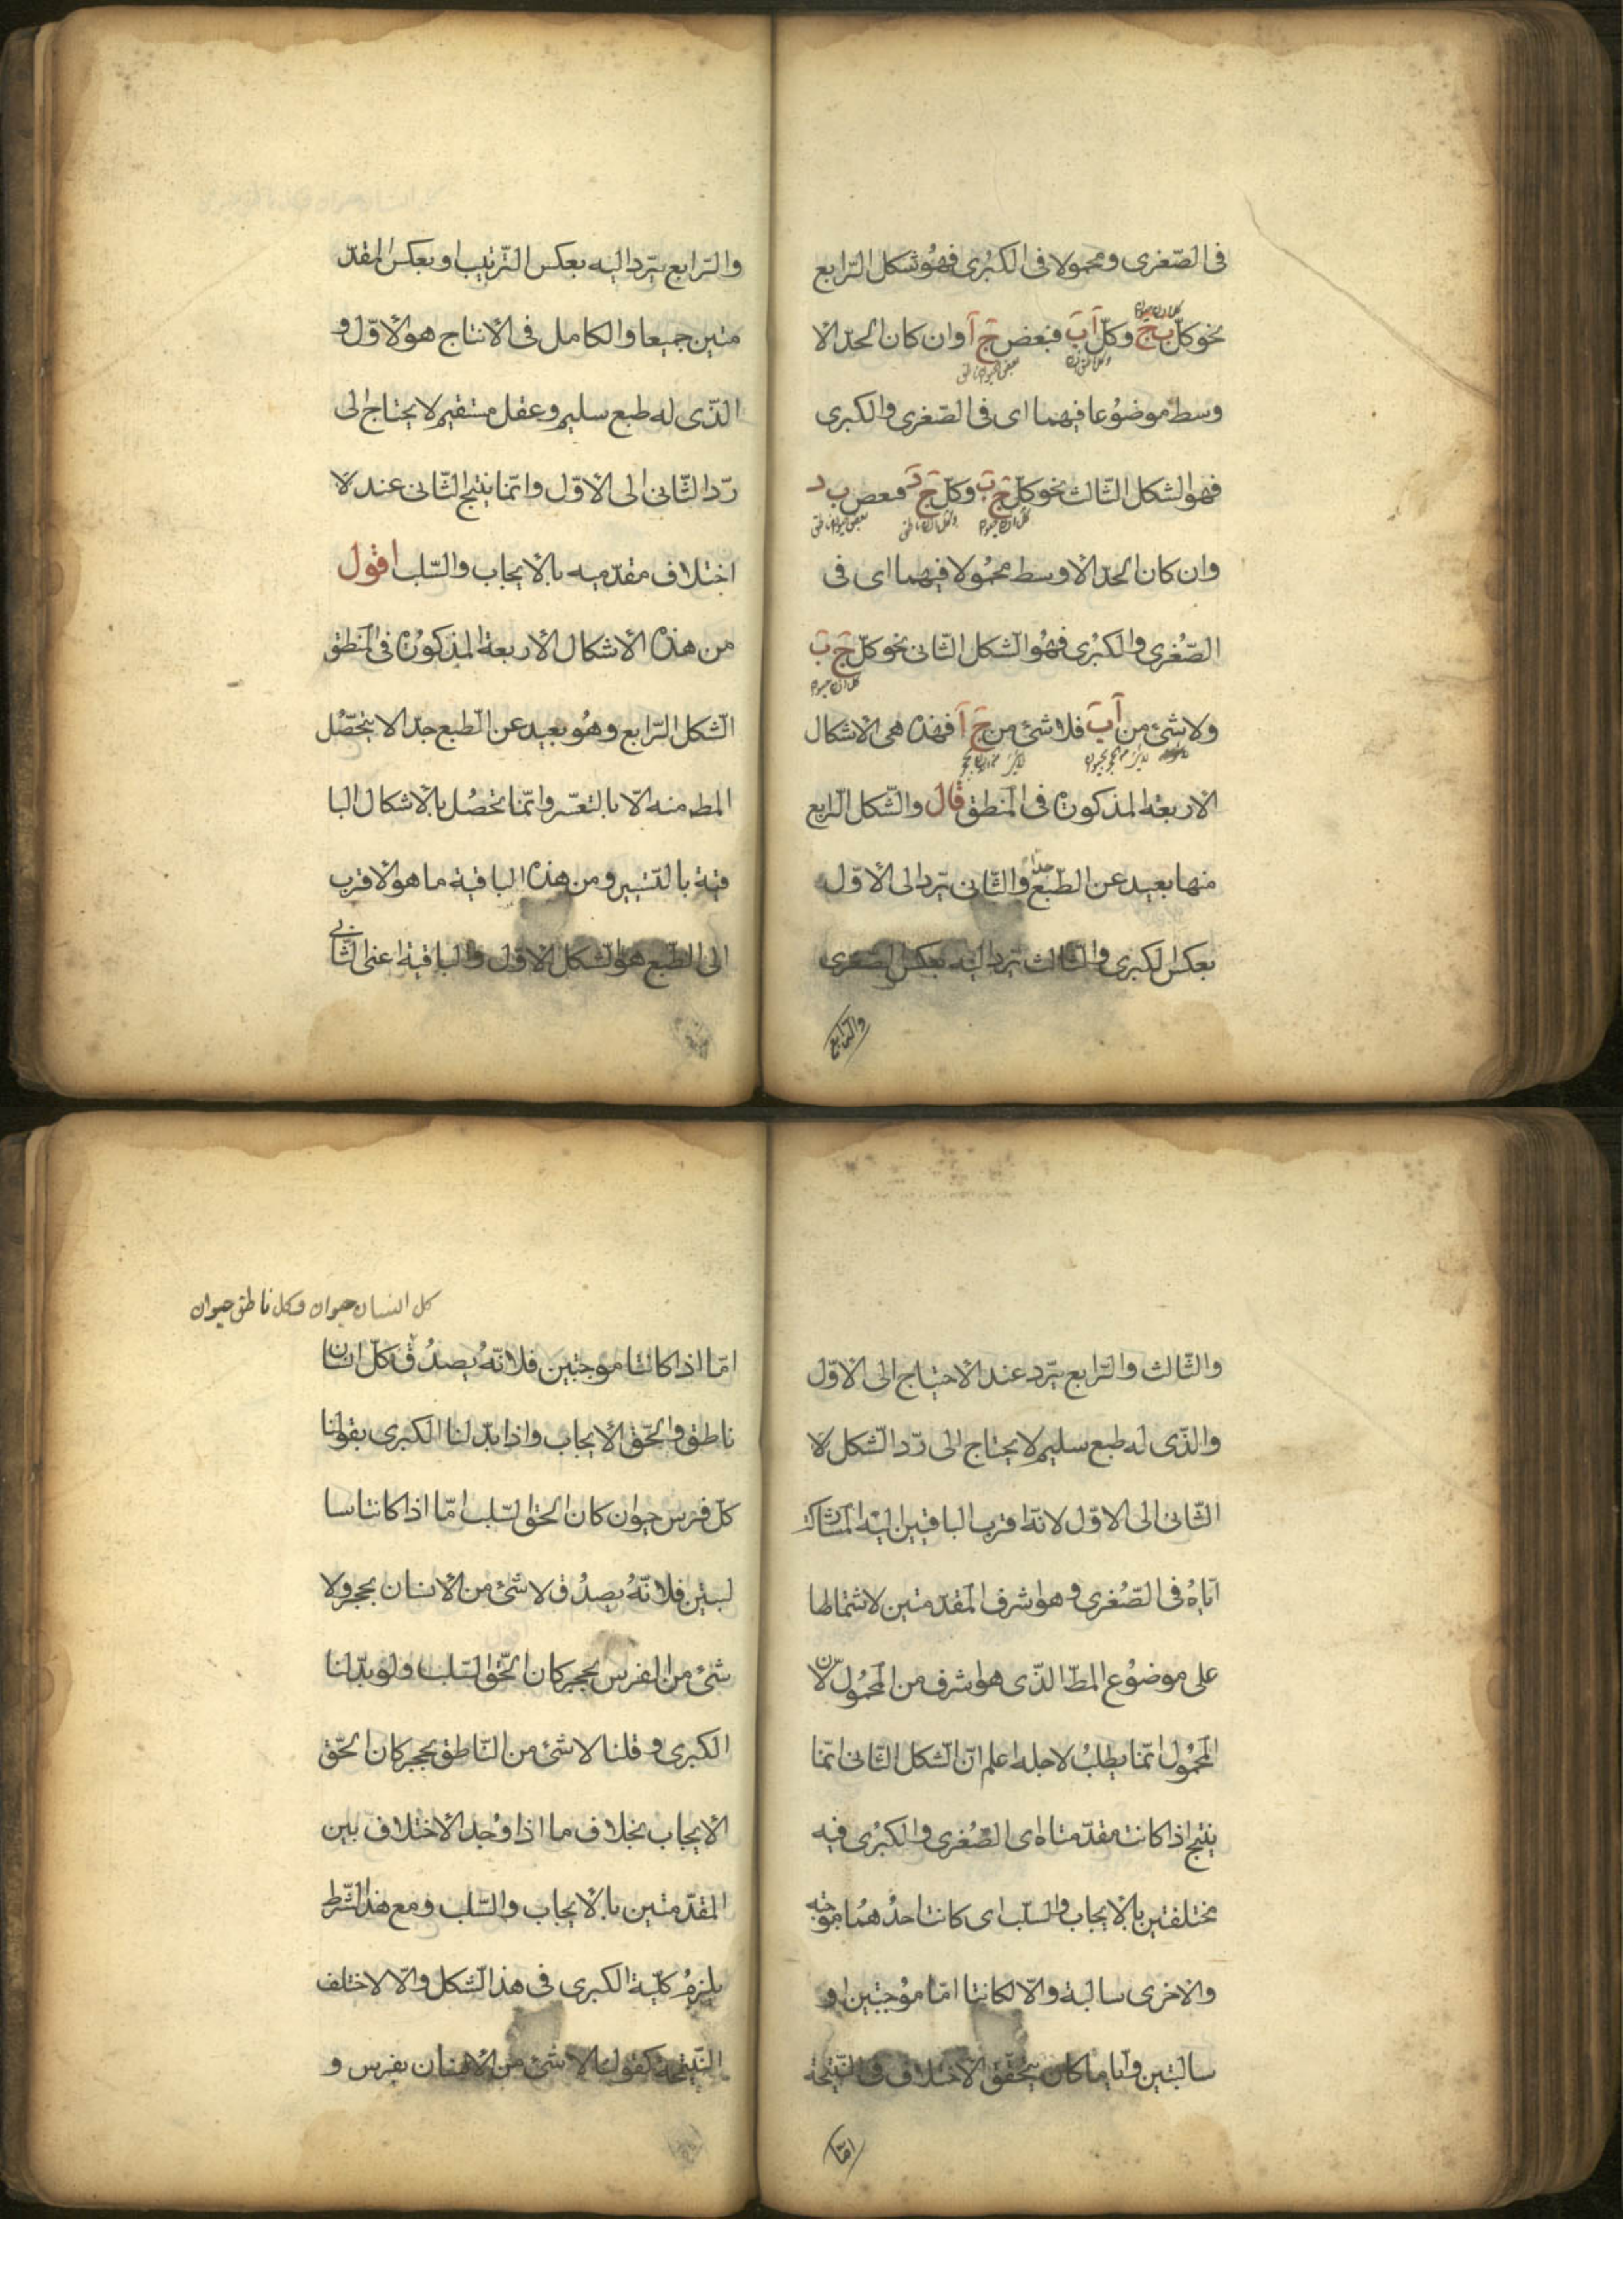 فى الصّغرى ومحمولا فى الكبرى فهو شكل الرّابع
نحو كلّ ب ج وكلّ آ ب فبعض ج آ وان كان الحدّ الا
وسط موضوعا فيهما اى فى الصّغرى والكبرى
فهو الشكل الثّالث نحو كلّ ج ب وكلّ ج د فبعض ب د
وان كان الحدّ الاوسط محمولا فيهما اى فى
الصّغرى والكبرى فهو الشّكل الثّانى نحو كلّ ج ب
كل انسان حيوان
ولا شئ من آ ب فلا شئ من ج آ فهذه هى الاشكال
الاربعة المذكورة فى المنطق قال والشّكل الرّابع
جدّا
منها بعيد عن الطّبع والثّانى يردّ الى الاوّل
بعكس الكبرى والثّالث يردّ اليه بعكس الصغرى
والرّابع
والرّابع يردّ اليه بعكس التّرتيب او بعكس المقدّ
متين جميعا والكامل فى الانتاج هو الاوّل و
الذّى له طبع سليم وعقل مستقيم لا يحتاج الى
ردّ الثّانى الى الاوّل وانّما ينتج الثّانى عند لا
اختلاف مقدّميه بالايجاب والسّلب اقول
من هذه الاشكال الاربعة المذكورة فى المنطق
الشّكل الرّابع وهو بعيد عن الطّبع جدّا لا يتحصّل
المط منه الّا بالتعسّر وانّما تحصل بالاشكال البا
قية بالتّيسير ومن هذه الباقية ما هو الاقرب
الى الطّبع هو الشكل الاوّل والباقية اعنى الثّانى
والثّالث والرّابع يردّ عند الاحتياج الى الاوّل
والذّى له طبع سليم لا يحتاج الى ردّ الشّكل لا
الثّانى الى الاوّل لانّه اقرب الباقيتين اليه لمشاركته
ايّاه فى الصّغرى وهو اشرف المقدّمتين لاشتمالها
على موضوع المطّ الذّى هو اشرف من المحمول لانّ
المحمول انّما يطلب لاجله اعلم انّ الشّكل الثّانى انّما
ينتج اذا كانت مقدّمتاه اى الصّغرى والكبرى فيه
مختلفتين بالايجاب والسّلب اى كانت احدهما موجبه
والاخرى سالبة والّا لكانتا امّا موجبتين او
سالبتين وايّاما كان يتحقّق الاختلاف فى النّتيجة
امّا
كل انسان حيوان وكل ناطق حيوان
امّا اذا كانتا موجبتين فلانّه يصدق كلّ انسان
ناطق والحقّ الايجاب واذا بدّلنا الكبرى بقولنا
كلّ فرس حيوان كان الحق السّلب امّا اذا كانتا سا
لبتين فلانّه يصدق لا شئ من الانسان بحجر ولا
شئ من الفرس بحجر كان الحّق السّلب ولو بدّلنا
الكبرى وقلنا لا شئ من النّاطق بحجر كان الحّق
الايجاب بخلاف ما اذا وجد الاختلاف بين
المقدّمتين بالايجاب والسّلب ومع هذا الشّرط
يلزم كلّية الكبرى فى هذ الشّكل والّا لاختلف
النّتيجة كقولنا لا شئ من الانسان بفرس و